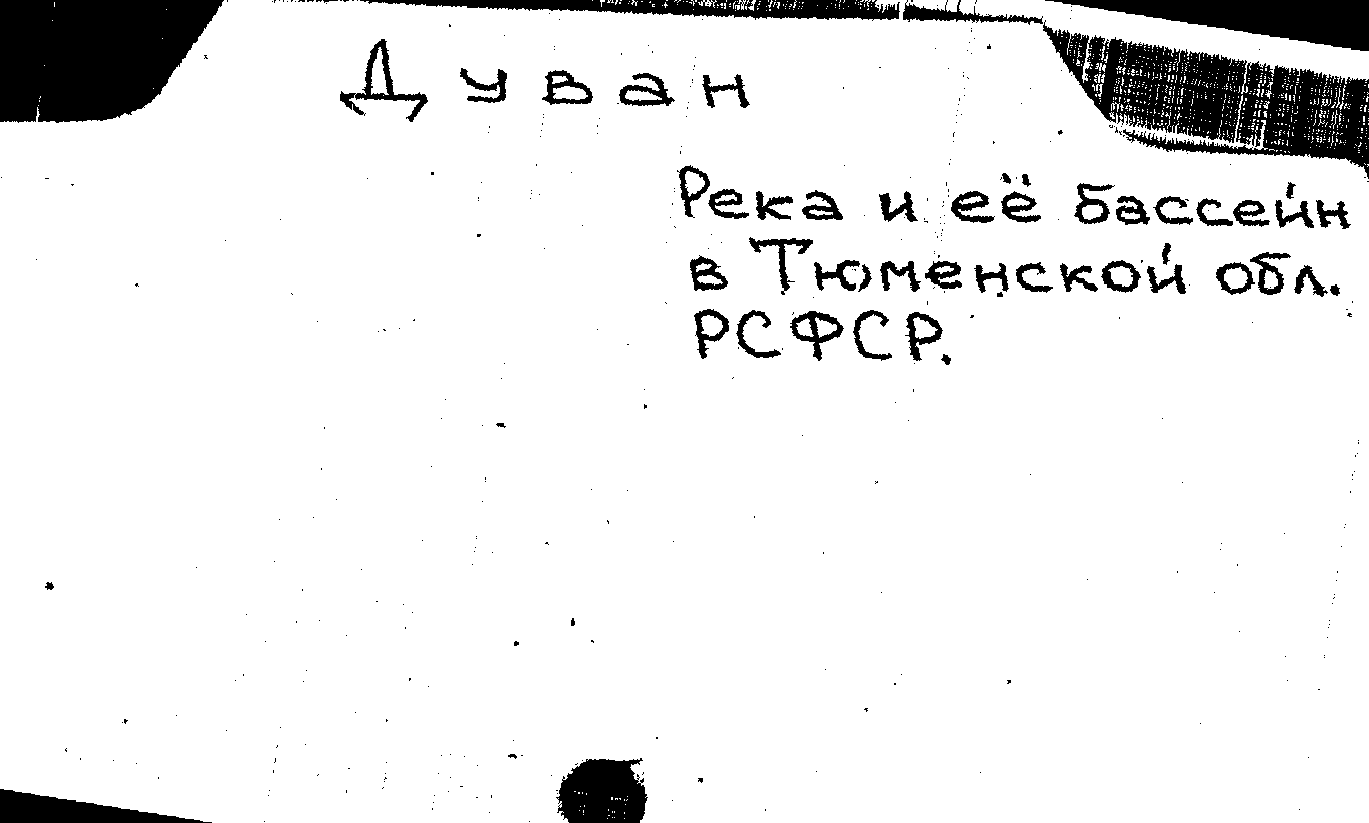 Дуван
Река и её бассейн
в Тюменской обл.
РСФСР.